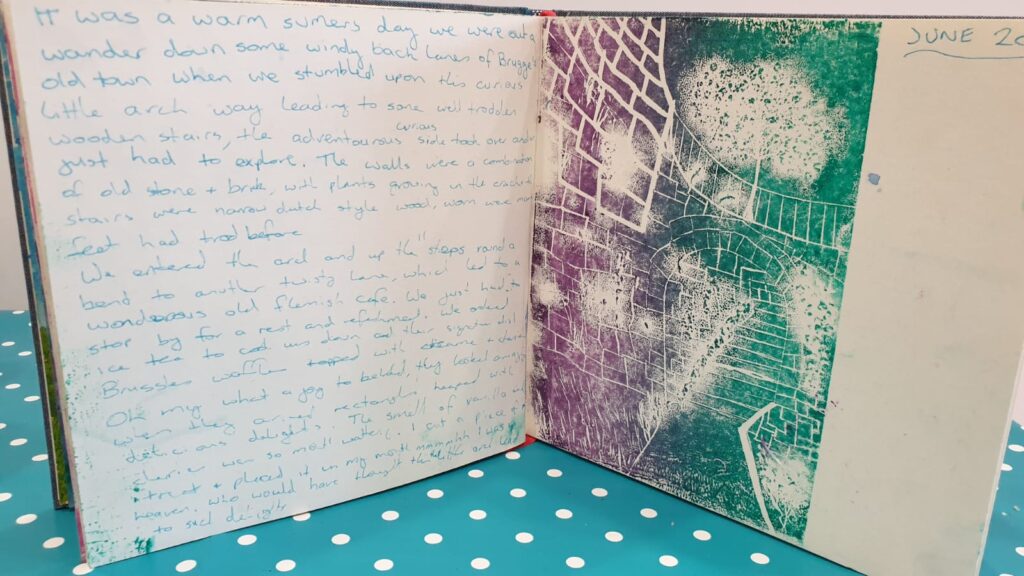 IT was a warm sumers day we were out a
wander down some windy back lanes of Brugge's
old town when we stumbled upon this curious
little arch way leading to some well trodden
wooden stairs, the adventourous side took over and
curious
just had to explore. The walls were a combination
of old stone + brick, with plants growing in the
stairs were narrow dutch style wood, worn
feet had trod before
We entered the arch and up the steps round a
bend to another twisty lane, which led to a
old flemish cafe. We just had to
stop by for a rest and We ordered
ice tea to cool us down and their signature dish
Brussles waffles topped with
Oh my what a joy to behold, they looked
when they arrived heaped with
delights. The smell of vanilla
was so I cut a piece
+ placed it in my mouth mmmmhh I was in
heaven. who would have thought
to such delights
JUNE 20